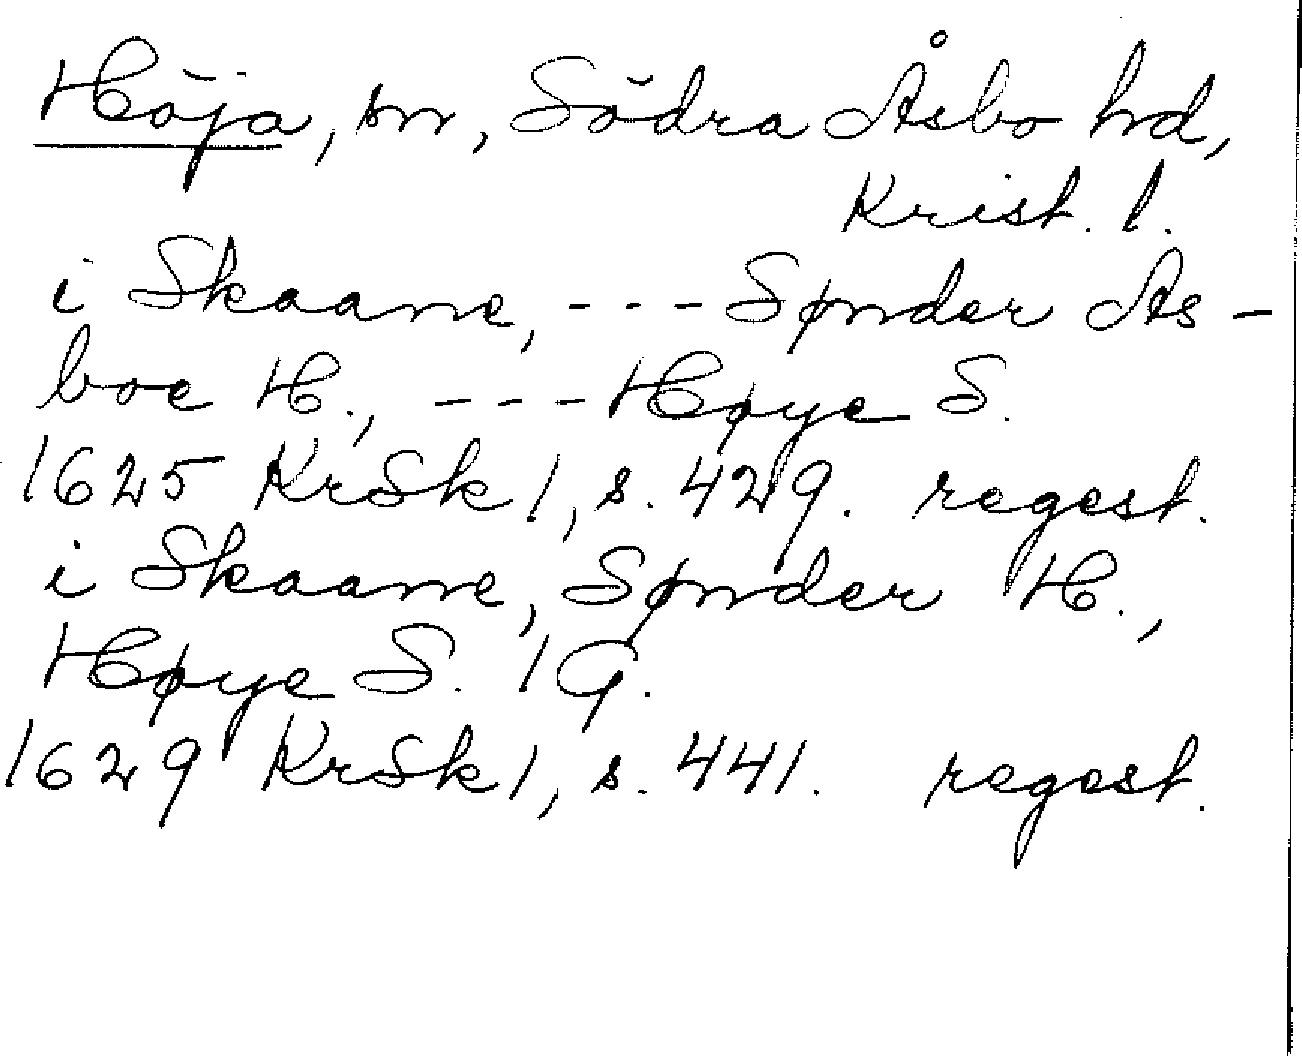 Höja, sn, Södra Åsbo hd,
Krist. l.
i Skaane, --- Sønder As-
boe H., --- Høye S.
1625 KrSk 1, s. 429. regest.
i Skaane, Sønder H.,
Høye S. 1 G.
1629 KrSk 1, s. 441. regest.